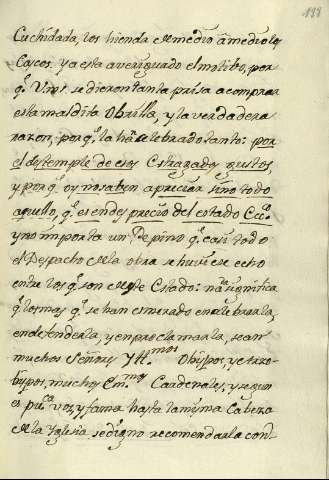 Cuchidada, los hienda de medio a medio los
Cascos. Ya esta averiguado el motibo, por
q.e Vms. se dieron tanta prisa a comprar
esta maldita Obrilla, y la verdadera
razon, porq.e la han celebrado tanto: por
el destemple de esos Estragados gustos,
y porq.e oy no saben apreciar sino todo
aquello, q.e es en desprecio del estado Ecc.o
y no importa un Pepino q.e casi todo
el Despacho de la obra se huviese echo
entre los q.e son de este Estado: nada significa
q.e los mas q.e se han esmerado en celebrarla,
en defenderla, y en proclamarla, sean
muchos Señores Ill.mos Obispos, y Arzo-
bispos, muchos Em.mos Cardenales, y segun
es pu.ca voz, y fama hasta la misma Cabeza
de la Yglesia se digno recomendarla con